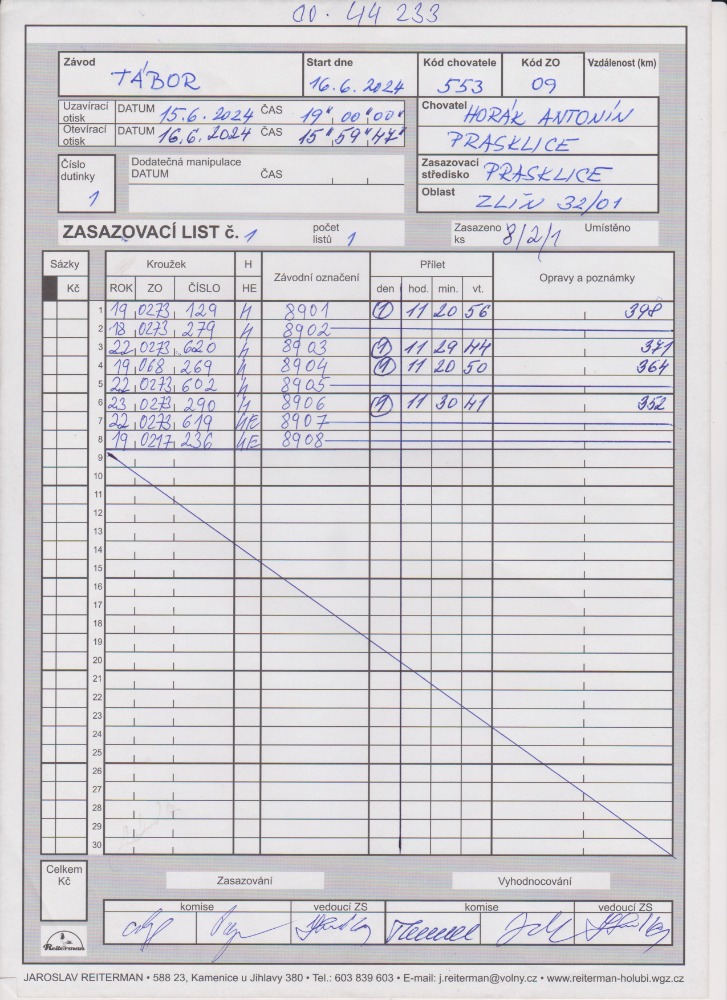 44 233
Závod Start dne Kód chovatele Kód ZO Vzdálenost (km)
TÁBOR 16.6.2024 553 09
Uzavírací otisk DATUM 15.6.2024 ČAS 19" 00" 00"
Otevírací otisk DATUM 16.6.2024 ČAS 15" 59" 47"
Chovatel HORÁK ANTONÍN
PRASKLICE
Číslo dutinky 1
Dodatečná manipulace
DATUM ČAS
Zasazovací středisko PRASKLICE
Oblast ZLÍN 32/01
ZASAZOVACÍ LIST č. 1 počet listů 1 Zasazeno ks 8/2/1 Umístěno
Sázky Kroužek H Závodní označení Přílet Opravy a poznámky
Kč ROK ZO ČÍSLO HE den hod. min. vt.
1 19 0273 129 H 8901 1 11 20 56 398
2 18 0273 279 H 8902
3 22 0273 620 H 8903 1 11 29 44 371
4 19 068 269 H 8904 1 11 20 50 364
5 22 0273 602 H 8905
6 23 0273 290 H 8906 1 11 30 41 352
7 22 0273 619 HE 8907
8 19 0217 236 HE 8908
9
10
11
12
13
14
15
16
17
18
19
20
21
22
23
24
25
26
27
28
29
30
Celkem Kč
Zasazování Vyhodnocování
komise vedoucí ZS komise vedoucí ZS
Reiterman
JAROSLAV REITERMAN • 588 23, Kamenice u Jihlavy 380 • Tel.: 603 839 603 • E-mail: j.reiterman@volny.cz • www.reiterman-holubi.wgz.cz